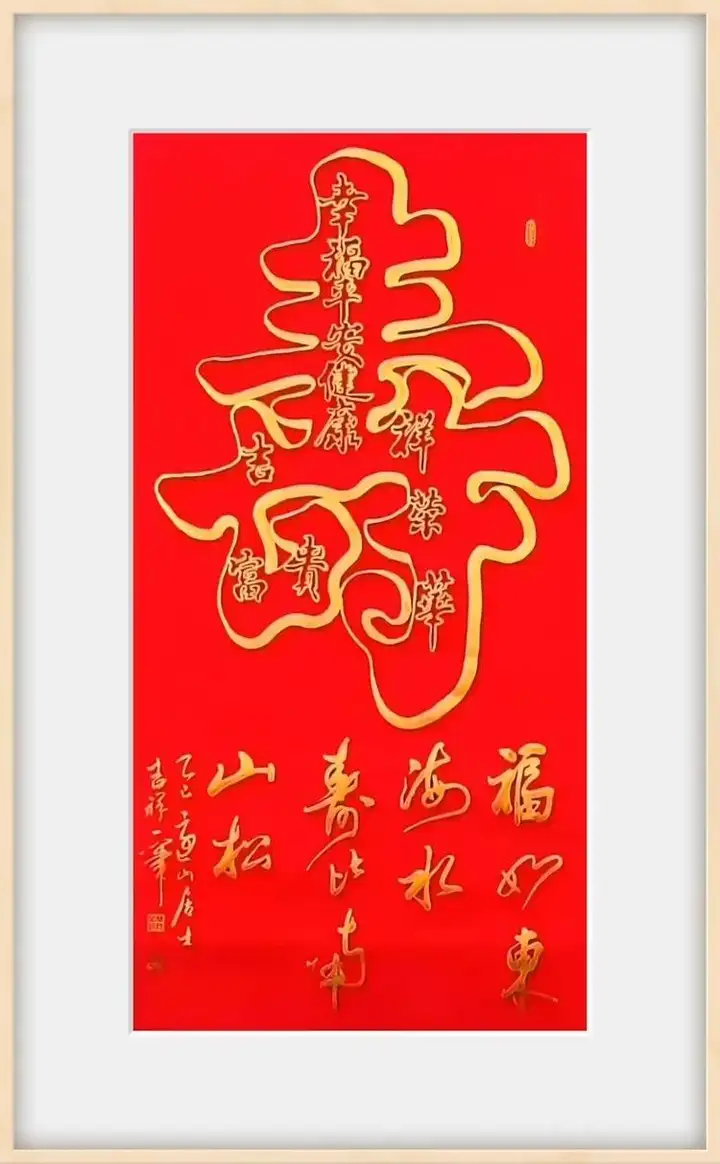 壽
幸福平安健康
吉祥
荣華
富貴
福如東
海水
壽比南
山松
乙巳山居士
吉祥一筆